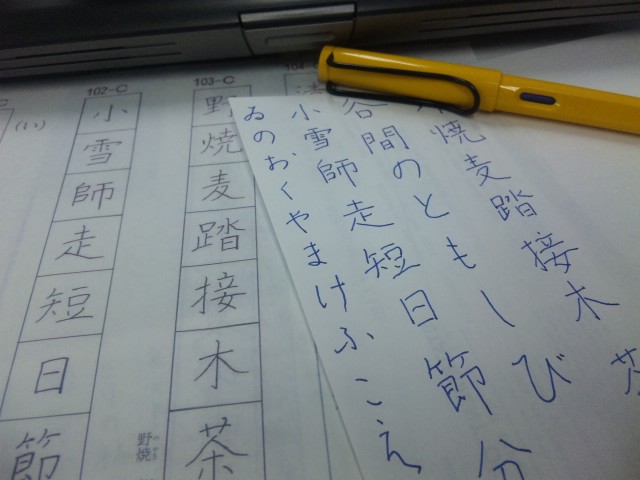 焼麦踏接木茶
谷間のともしび
小雪師走短日節分
ゐのおくやまけふこえ
103-C
野焼麦踏接木茶
野焼
102-C
小雪師走短日節
(い)